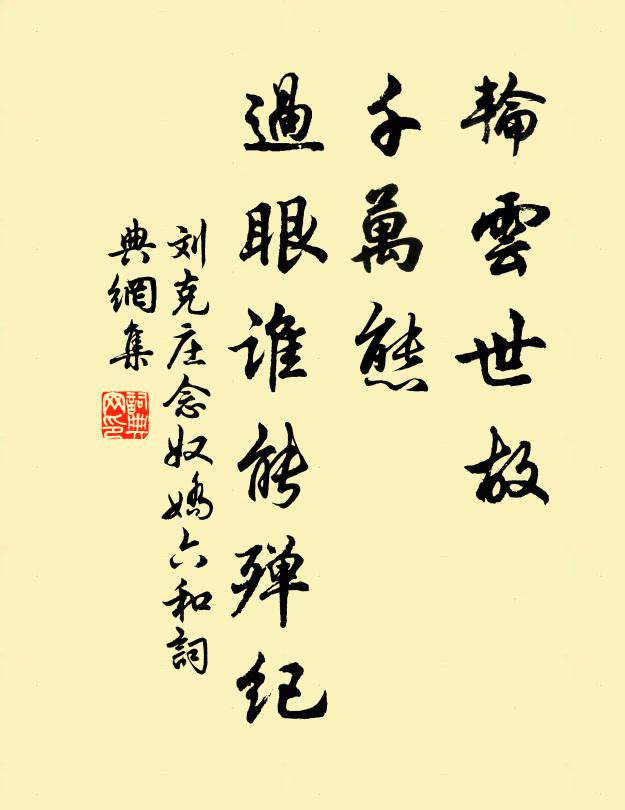 輪雲世故
千萬態
過眼誰能殫紀
刘克庄念奴嬌六和詞
典網集
詞典
网印